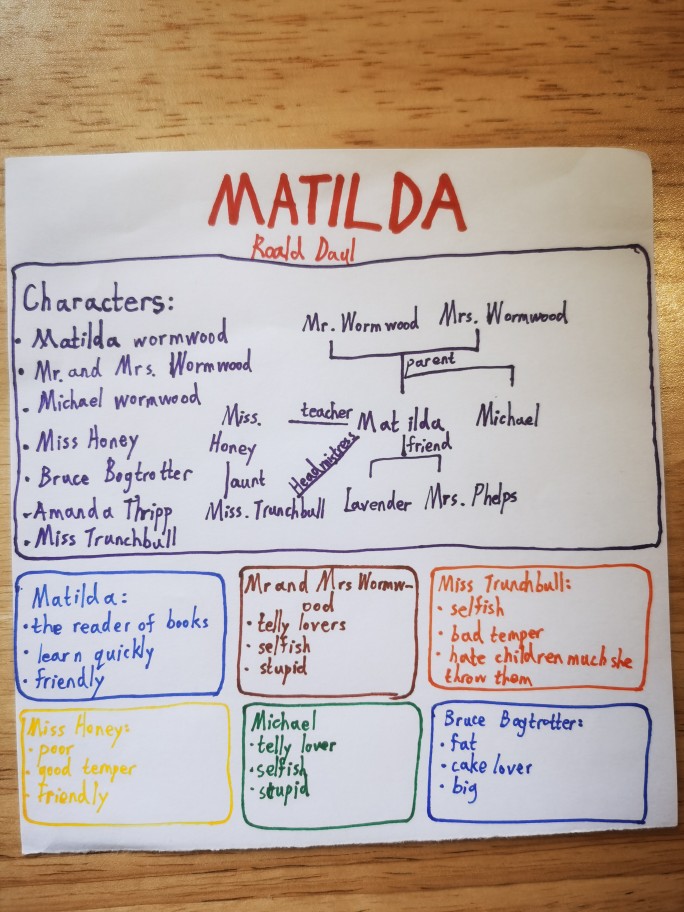 MATILDA
Roald Dayl
Characters:
• Matilda wormwood
• Mr. and Mrs. Wormwood
• Michael wormwood
• Miss Honey
• Bruce Bogtrotter
• Amanda Thripp
• Miss Trunchbull
Mr. Wormwood Mrs. Wormwood
parent
Miss. Honey
teacher
Matilda
Michael
aunt
Headmistress
friend
Miss. Trunchbull
Lavender
Mrs. Phelps
Matilda:
• the reader of books
• learn quickly
• friendly
Mr and Mrs Wormw-
ood
• telly lovers
• selfish
• stupid
Miss Trunchbull:
• selfish
• bad temper
• hate children much she
throw them
Miss Honey:
• poor
• good temper
• friendly
Michael
• telly lover
• selfish
• stupid
Bruce Bogtrotter:
• fat
• cake lover
• big